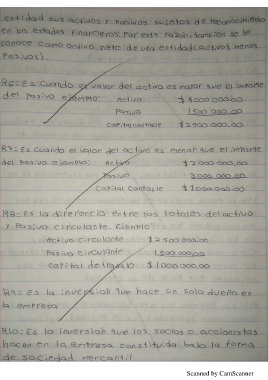 entidad sus activos y pasivos sujetos de reconocimiento
en los estados financieros. Por esta razón, también se le
conoce como activo neto de una entidad (activos menos
Pasivos).
R6: Es Cuando el valor del activo es mayor que el importe
del Pasivo ejemplo: Activo $4 000 000.00
Pasivo 1 500 000.00
Capital contable $2 500 000.00
R7: Es Cuando el valor del activo es menor que el importe
del Pasivo ejemplo: Activo $2 000 000.00
Pasivo 3000 000.00
Capital Contable $1 000 000.00
R8: Es la diferencia entre los totales del activo
y Pasivo circulante. Ejemplo:
Activo circulante $2 500 000.00
Pasivo circulante 1 500 000.00
Capital de trabajo $1 000 000.00
R9: Es la inversión que hace un solo dueño en
la empresa
R10: Es la inversión que los socios o accionistas
hacen en la empresa constituida bajo la forma
de sociedad mercantil
Scanned by CamScanner